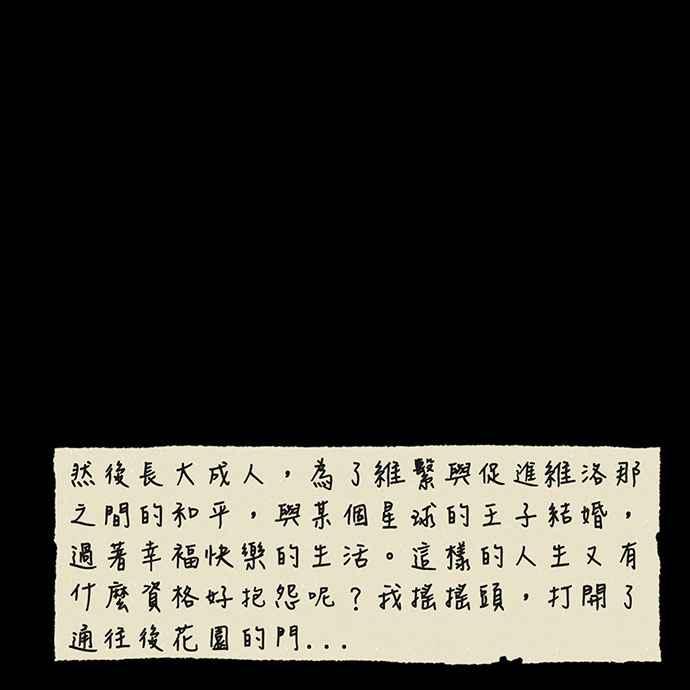 然後長大成人，為了維繫與促進維洛那
之間的和平，與某個星球的王子結婚，
過著幸福快樂的生活。這樣的人生又有
什麼資格好抱怨呢？我搖搖頭，打開了
通往後花園的門...